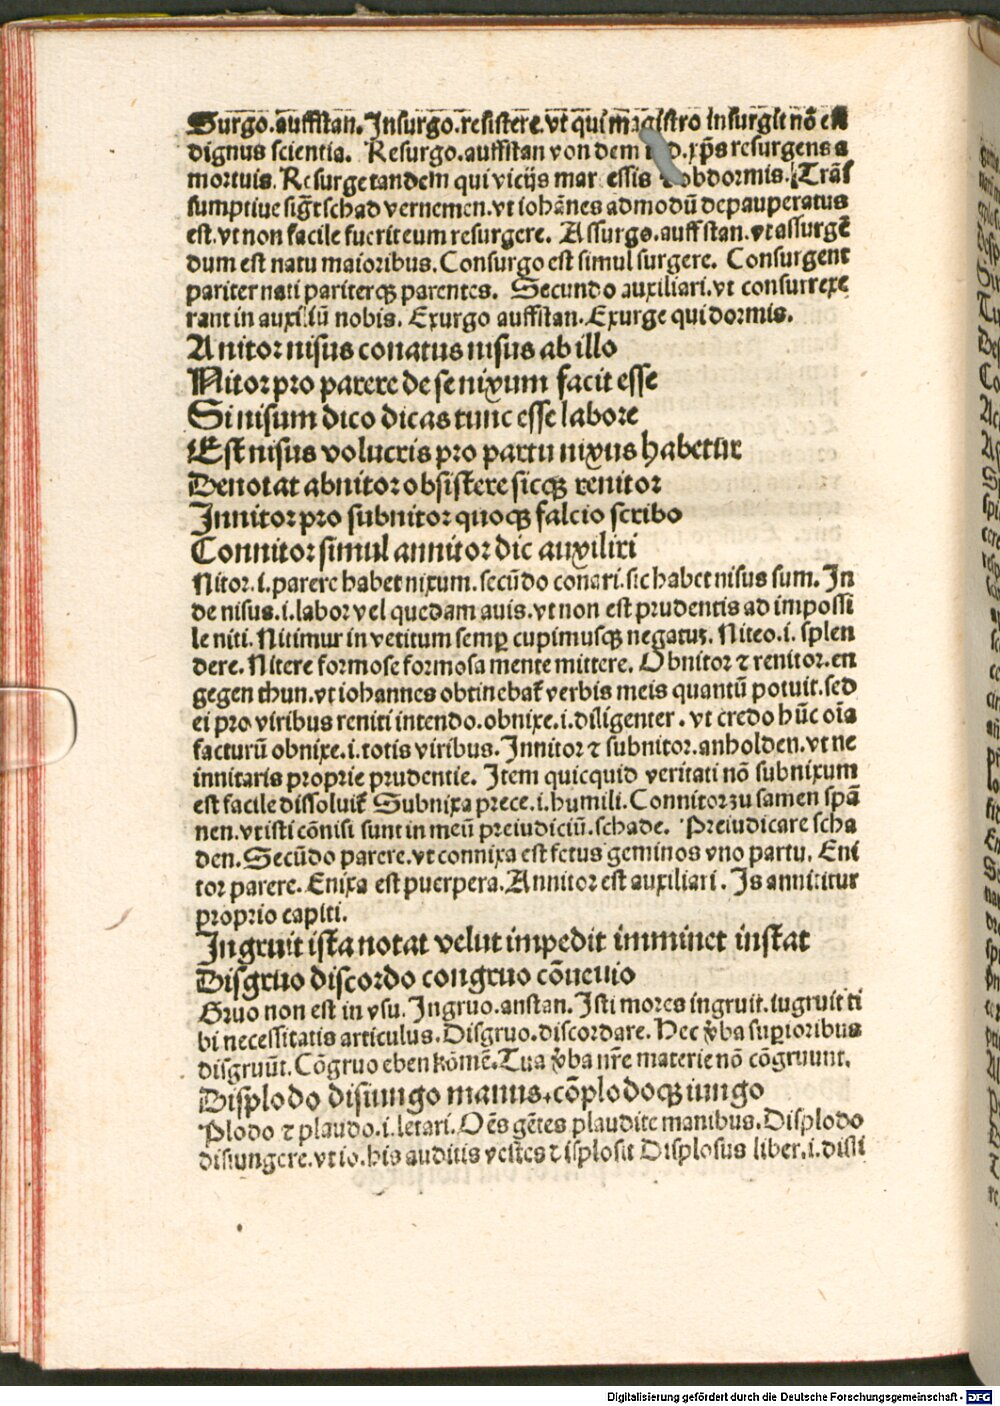 Surgo.auffſtan. Inſurgo.reſiſtere.vt qui magiſtro inſurgit nō eſt
dignus ſcientia. Reſurgo.auffſtan von dem .xp̄s reſurgens a
mortuis. Reſurge tandem qui vicijs obdormis. Trāſ
ſumptiue ſigt̄ ſchad vernemen.vt iohānes admodū depauperatus
eſt.vt non facile fuerit eum reſurgere. Aſſurgo.auffſtan.vt aſſurgē
dum eſt natu maioribus. Conſurgo eſt ſimul ſurgere. Conſurgent
pariter nati pariterqꝫ parentes. Secundo auxiliari.vt conſurrexe
rant in auxiliū nobis. Exurgo auffſtan. Exurge qui dormis.
A nitor niſus conatus niſus ab illo
Nitor pro parere de ſe nixum facit eſſe
Si niſum dico dicas tunc eſſe labore
Eſt niſus volucris pro partu nixus habetur
Denotat abnitor obſiſtere ſicqꝫ renitor
Innitor pro ſubnitor quoqꝫ falcio ſcribo
Connitor ſimul annitor dic auxiliri
Nitor.i.parere habet nixum.ſecūdo conari.ſic habet niſus ſum. In
de niſus.i.labor vel quedam auis.vt non eſt prudentis ad impoſſi
le niti. Nitimur in vetitum ſemꝑ cupimuſqꝫ negatur. Niteo.i. ſplen
dere. Nitere formoſe formoſa mente mittere. Obnitor ⁊ renitor.en
gegen thun.vt iohannes obtinebat̄ verbis meis quantū potuit.ſed
ei pro viribus reniti intendo.obnixe.i.diligenter. vt credo hūc oīa
facturū obnixe.i.totis viribus. Innitor ⁊ ſubnitor.anholden.vt ne
innitaris proprie prudentie. Item quicquid veritati nō ſubnixum
eſt facile diſſoluit̄ Subnixa prece.i.humili. Connitor zu ſamen ſpā
nen.vt iſti cōniſi ſunt in meū preiudiciū.ſchade. Preiudicare ſcha
den. Secūdo parere.vt connixa eſt fetus geminos vno partu. Eni
tor parere. Enixa eſt puerpera. Annitor eſt auxiliari. Is annititur
proprio capiti.
Ingruit iſta notat velut impedit imminet inſtat
Diſgruo diſcordo congruo cōuenio
Gruo non eſt in vſu. Ingruo.anſtan. Iſti mores ingruit.iugruit ti
bi neceſſitatis articulus. Diſgruo.diſcordare. Hec v̄ba ſuꝑioribus
diſgruūt. Cōgruo eben kōmē. Tua v̄ba nr̄e materie nō cōgruunt.
Diſplodo diſiungo manus.cōplodoqꝫ iungo
Plodo ⁊ plaudo.i.letari. Oēs gētes plaudite manibus. Diſplodo
diſiungere.vt io.his auditis veſtes diſploſit Diſploſus liber.i.diſſi
Digitalisierung gefördert durch die Deutsche Forschungsgemeinschaft - DFG